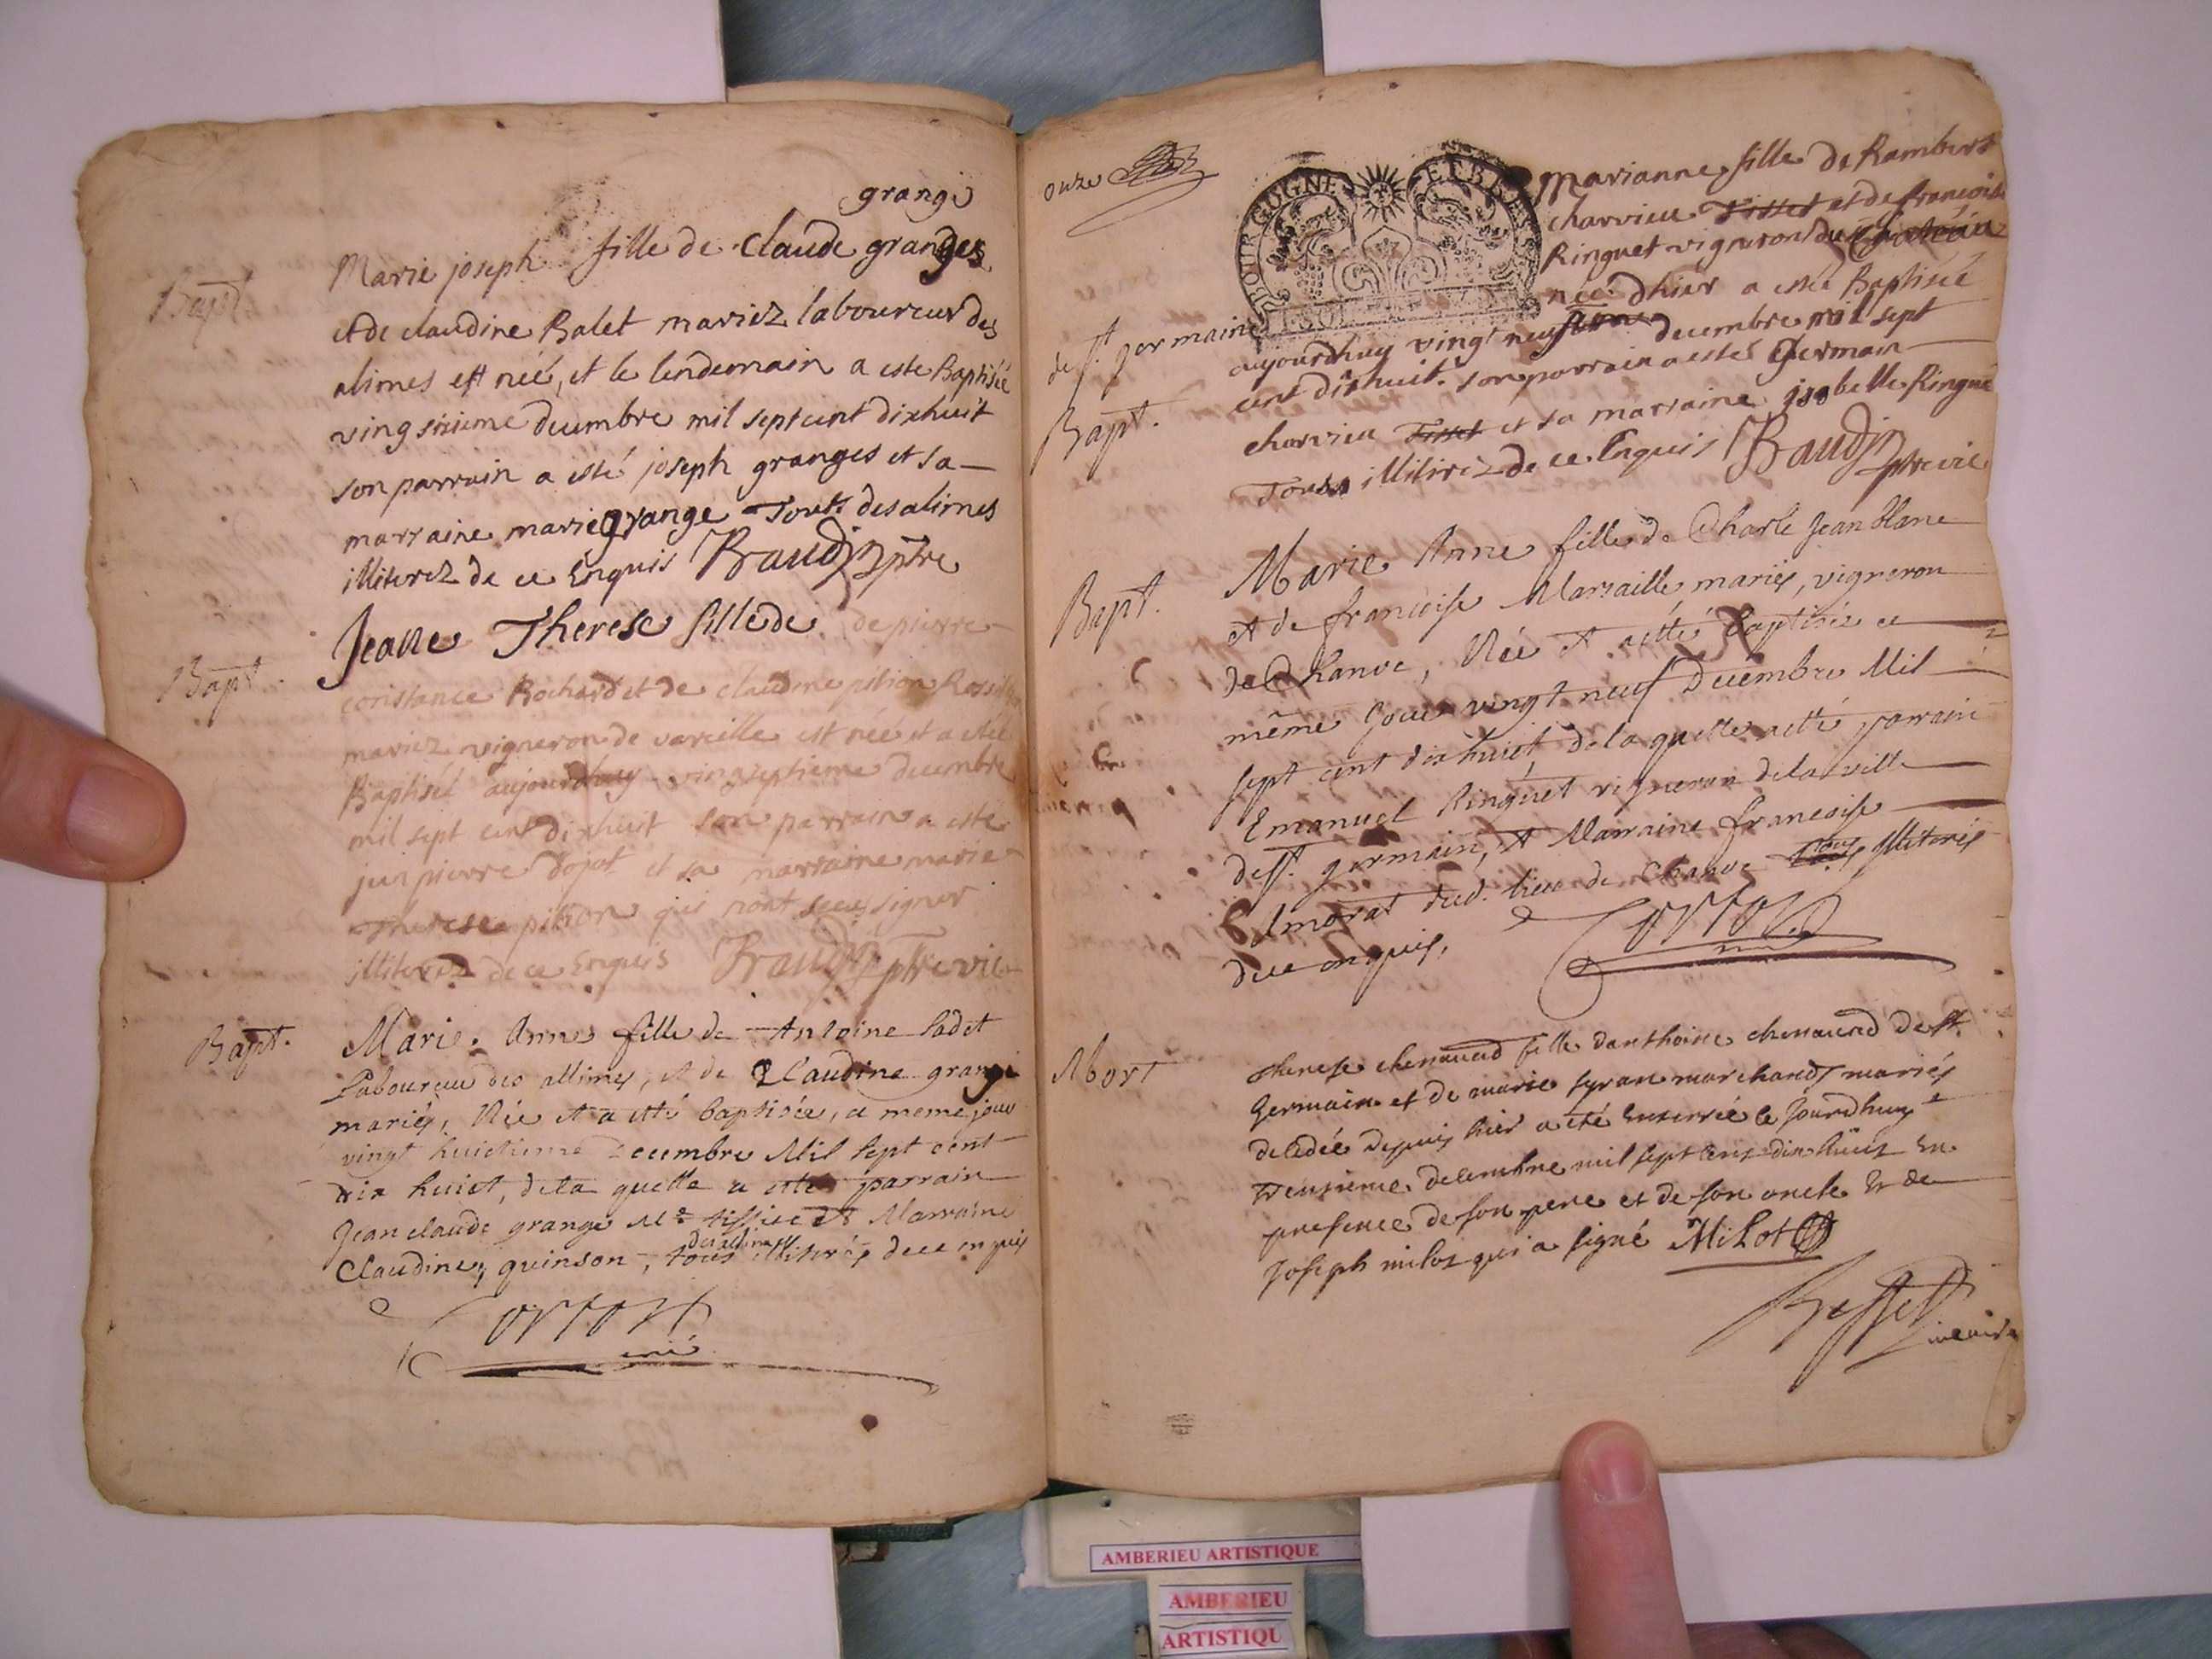 grange
Bapt.
Marie joseph fille de Claude granges
et de claudine Balet mariez laboureur des
alimes est neé, et le lendemain a este Baptiseé
vingsixieme decembre mil sept cent dixhuit
son parrain a esté joseph granges et sa
marraine marie grange Tout desalimes
illiterez de ce Enquis Baudin ptre
Bapt.
Jeane Therese fille de de pierre
constance Rochard et de claudine pition
mariez vigneron de vareille est neé et a esteé
Baptiseé aujourdhuy vingseptieme decembre
mil sept cent dixhuit son parrain a este
jean pierre dojat et sa marraine marie
Therese pition qui nont sceu signer
illiterez de ce Enquis Baudin ptre vic
Bapt.
Marie Anne fille de Antoine Cadet
Laboureur des allimes, et de Claudine grange
mariés, Née et a eté baptisée, ce meme jour
vingt huictieme Decembre Mil sept cent
dix huict, dela quelle a etté parrain
Jean claude grange Me tissier et Marraine
des allimes
Claudine, quinson, tous illiterés dece enquis
curé
onze
Marianne fille de Rambert
charvieu Tisset et de francoise
Ringuet vigneron du Chateau
de st. germain
née dhier a esté Baptiseé
aujourdhuy vingt neuf decembre mil sept
cent dixhuit. son parrain a estés Germain
Bapt.
charvieu Tisset et sa marraine jsabelle Ringue
Tous illiterez de ce Enquis Baudin ptre vic
BOURGOGNE ET BRE
Bapt.
Marie Anne fille de Charle Jean blanc
et de francoise Marsaille mariés, vigneron
de Chanve, Née et a etté baptisée ce
même jour vingt neuf Decembre Mil
sept cent dix huict, dela quelle a etté parrain
Emanuel Ringuet vigneron dela ville
de st. germain, et Marraine francoise
Amorat dud. lieu de Chanve Tous illiterés
dece enquis,
Mort
therese chenaud fille danthoine chenaud de st.
germain et de marie syran marchands mariés
decedée depuis hier a eté Enterrée ce jourdhuy
trentieme decembre mil sept cens dix huit En
presence de son pere et de son oncle Et de
Joseph milot qui a signé Milot
Besset
vicaire
AMBERIEU ARTISTIQUE
AMBERIEU
ARTISTIQU